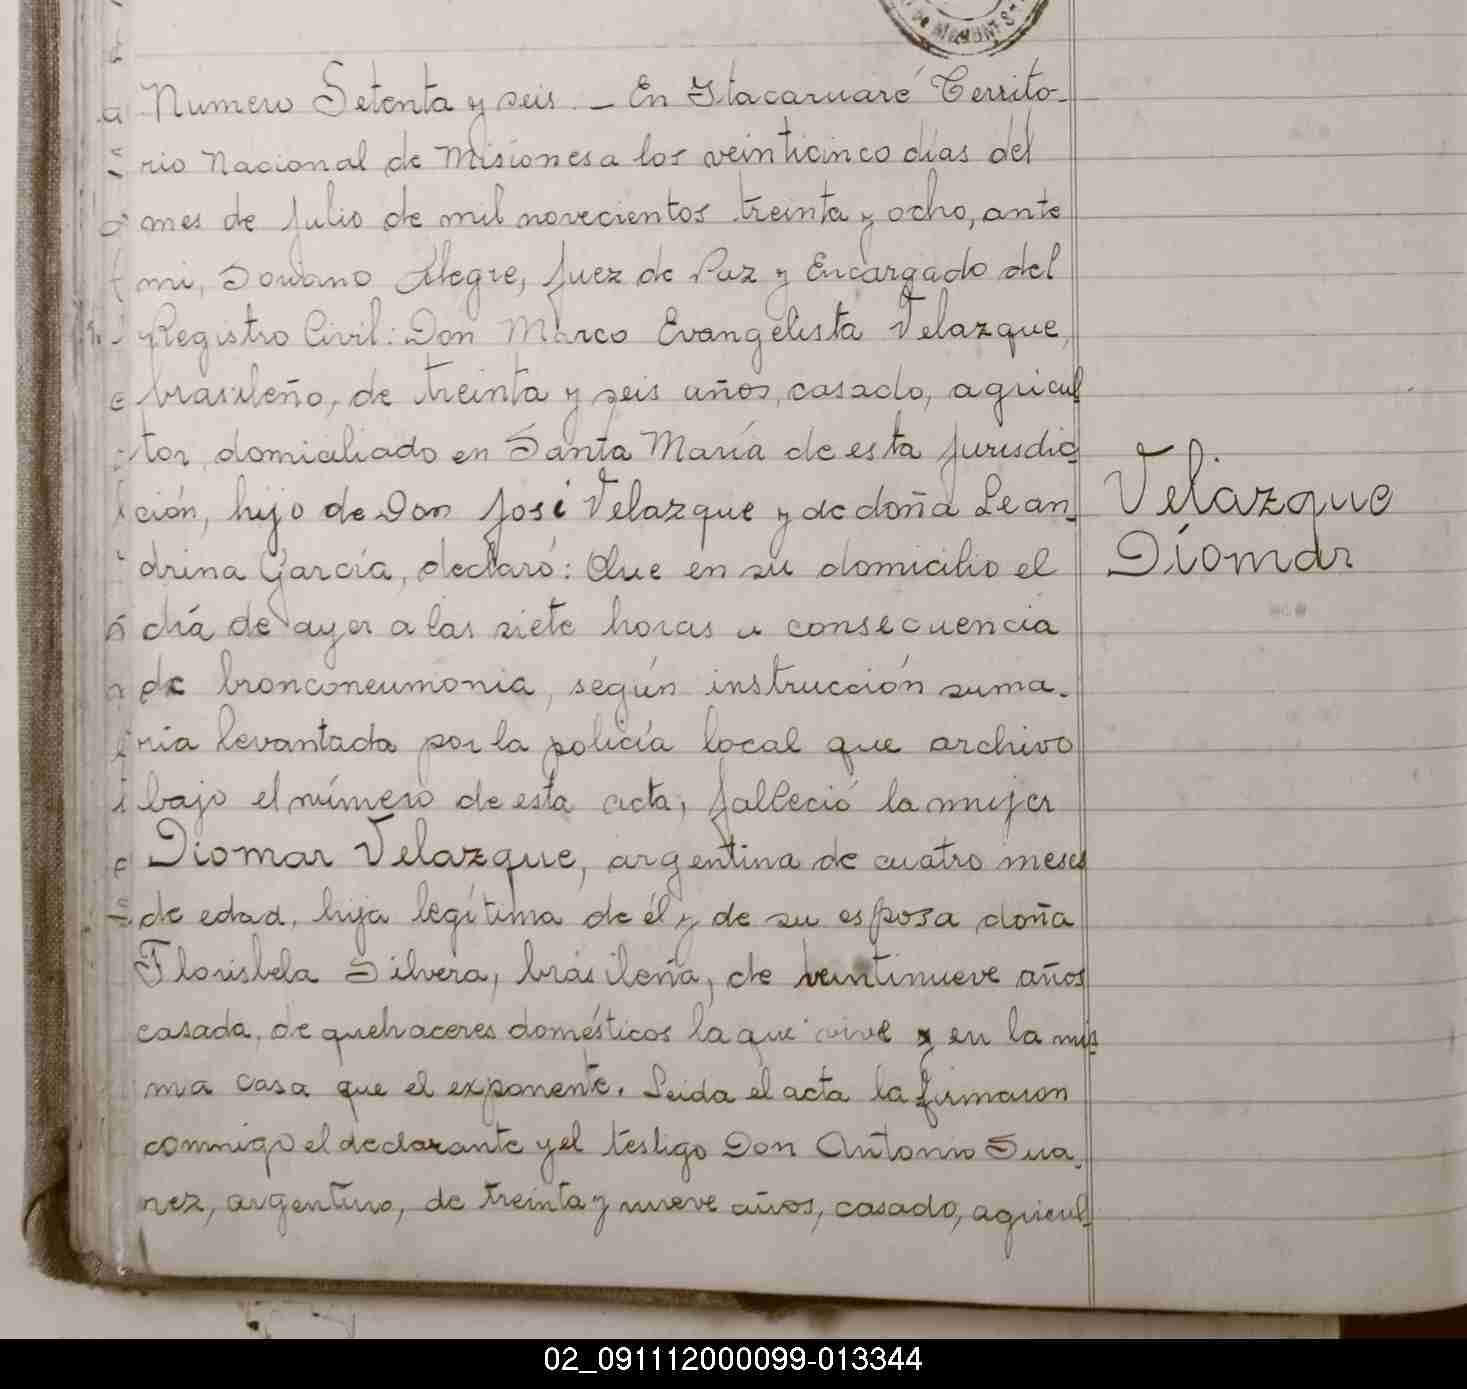 Numero Setenta y seis. — En Itacaruaré Territo-
rio Nacional de Misiones a los veinticinco días del
mes de Julio de mil novecientos treinta y ocho, ante
mi, Alegre, Juez de Paz y Encargado del
Registro Civil: Don Marco Evangelista Velazque,
brasileño, de treinta y seis años, casado, agricul
tor, domiciliado en Santa María de esta Jurisdic
ción, hijo de Don José Velazque y de doña Lean-
drina García, declaró: Que en su domicilio el
día de ayer a las siete horas a consecuencia
de bronconeumonia, según instrucción suma-
ria levantada por la policía local que archivo
bajo el número de esta acta, falleció la mujer
Diomar Velazque, argentina de cuatro meses
de edad, hija legítima de él y de su esposa doña
Florisbela Silvera, brasileña, de veintinueve años
casada, de quehaceres domésticos la que vive y en la mis
ma casa que el exponente. Leida el acta la firmaron
conmigo el declarante y el testigo Don Antonio Sua-
rez, argentino, de treinta y nueve años, casado, agricul-
Velazque
Diomar
02_091112000099-013344